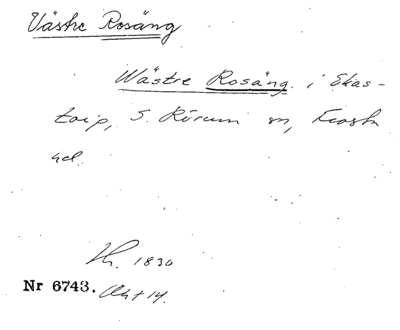 Västre Rosäng
Wästre Rosäng i Ekas-
torp, S. Rörum sn, Frosta
hd.
1830
Nr 6743. Akt 14.